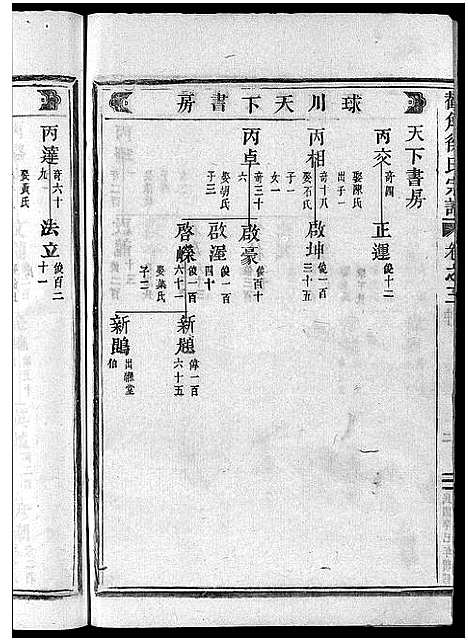 球川天下書房
天下書房
丙交 奇四 娶陳氏 出子一
正運 俊十二
丙相 奇十八 娶石氏 子一 女一
啟坤 俊一百三十五
丙卓 奇三十六 娶胡氏 子三
啟豪 俊百十
啟渥 俊一百四十
啓嶸 俊一百六十一 娶葉氏 子二
新題 偉一百六十五
新鵾 出繼堂伯
丙蓬 奇六十九 娶黃氏
法立 俊百二十一
徐氏宗譜 卷之三